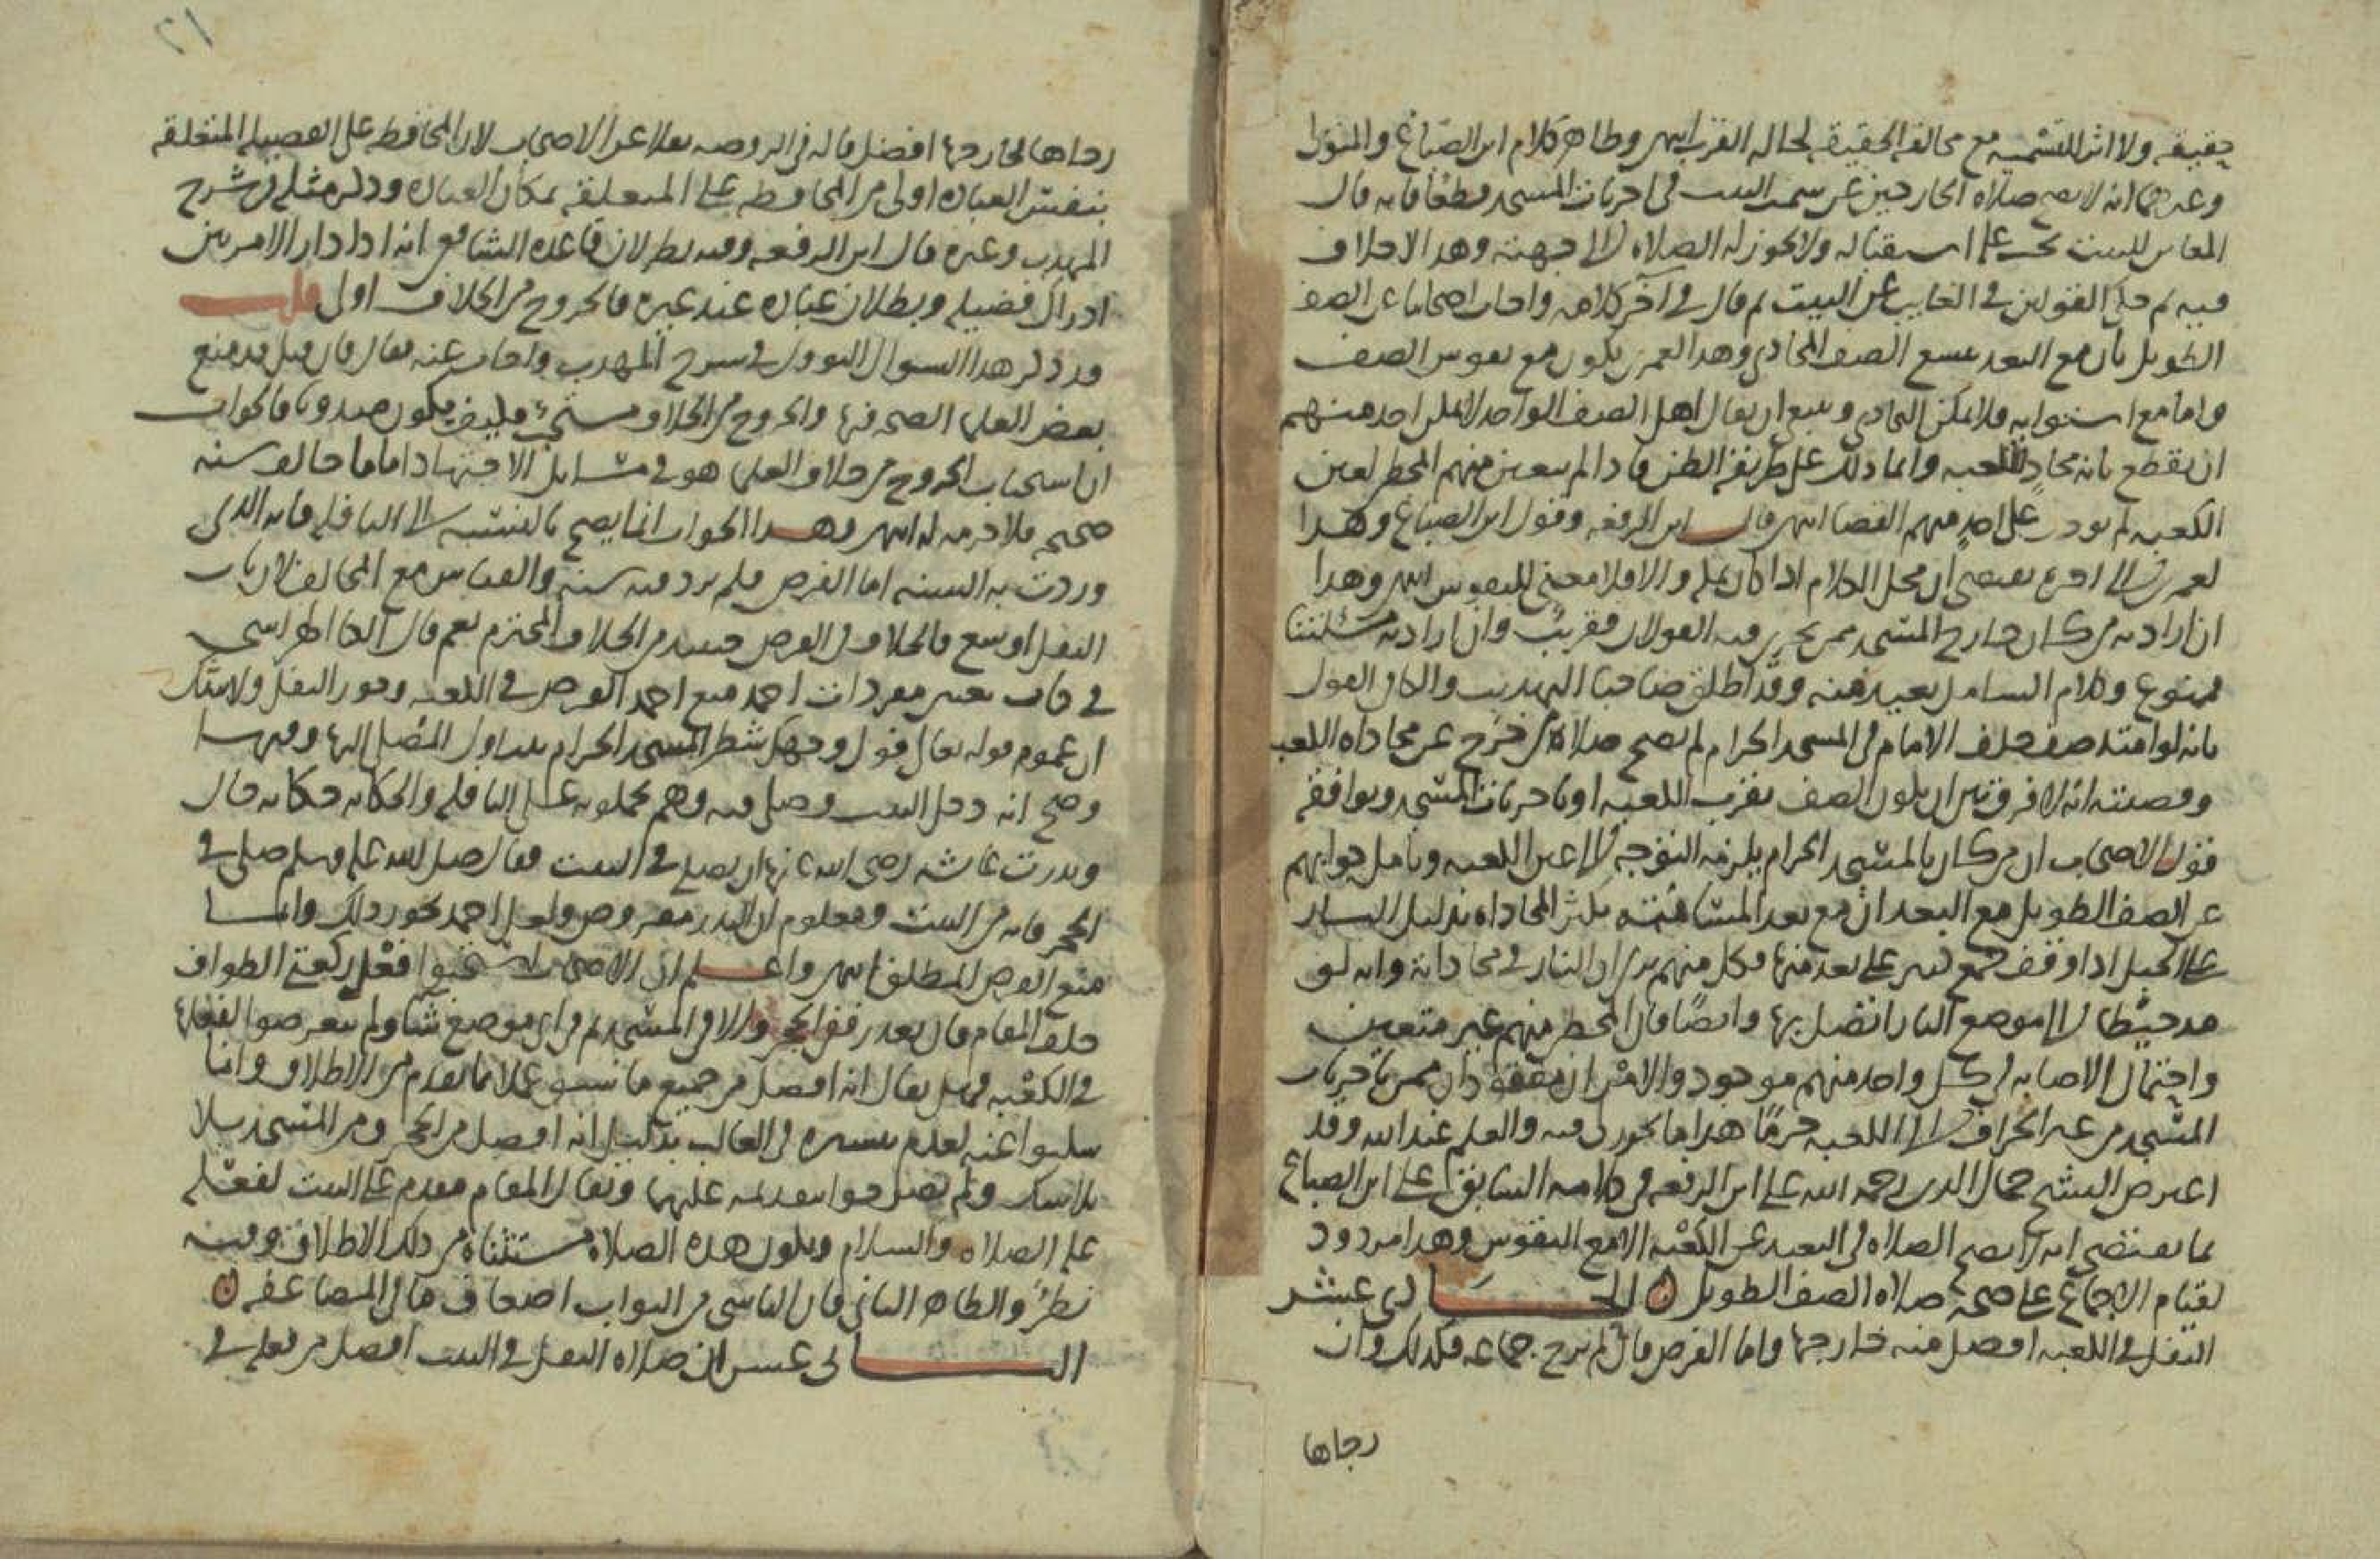 حقيقه ولا اثر للتسميه مع مخالفه الحقيقه لحاله القرب انتهى وظاهر كلام ابن الصباغ والمتولى
وغيرهما انه لا يصح صلاه الخارجين عن سمت البيت في اخريات المسجد قطعا فانه قال
المعاين للبيت يجب عليه استقباله ولا يجوز له الصلاه الا الى جهته وهذا لا خلاف
فيه ثم حكى القولين في الغايب عن البيت ثم قال في آخر كلامه واجاب اصحابنا عن الصف
الطويل بان مع البعد يتسع الصف المحاذى وهذا انما يكون مع تقوس الصف
واما مع استوايه فلا يمكن التحاذى وينبغي ان يقال اهل الصف الواحد لا يمكن احد منهم
ان يقطع بانه محاذ للكعبه وانما ذلك على طريق الظن فاذا لم يتعين منهم المخطى لعين
الكعبه لم نوجب على احد منهم القضا انتهى قال ابن الرفعه وقول ابن الصباغ وهذا
الى اخره يقتضى ان محل الكلام اذا كان بمكه والا فلا معنى للتقوس انتهى وهذا
ان اراد به من كان خارج المسجد ممن يجرى فيه القولان فقريب وان اراد به مسئلتنا
فممنوع وكلام الشامل بعيد منه وقد اطلق صاحبا التهذيب والكافى القول
بانه لو امتد صف خلف الامام في المسجد الحرام لم تصح صلاة من خرج عن محاذاه الكعبه
وقضيته انه لا فرق بين ان يكون الصف بقرب الكعبه او باخريات المسجد ويوافقه
قول الاصحاب ان من كان بالمسجد الحرام يلزمه التوجه الى عين الكعبه وتامل جوابهم
عن الصف الطويل مع البعد ان مع بعد المسافة تكثر المحاذاه بدليل النار
على الجبل اذا وقف جمع كثير على بعد منها فكل منهم يرى ان النار في محاذاته وانه لو
مد خيطا الى موضع النار اتصل بها وايضا فان المخطى منهم غير متعين
واحتمال الاصابه في كل واحد منهم موجود والامران مفقودان ممن باخريات
المسجد من غير انحراف الى الكعبه جزما هذا ما تحرر لى فيه والعلم عند الله وقد
اعترض الشيخ جمال الدين رحمه الله على ابن الرفعه في كلامه السابق على ابن الصباغ
بما يقتضي انه لا تصح الصلاه في البعيد عن الكعبه الا مع التقوس وهذا مردود
لقيام الاجماع على صحة صلاه الصف الطويل ن الحادى عشر
التنفل في الكعبه افضل منه خارجها واما الفرض فان لم يرج جماعه فكذلك وان
رجاها
٢١
رجاها فخارجها افضل قاله في الروضه نقلا عن الاصحاب لان المحافظه على الفضيله المتعلقه
بنفس العباده اولى من المحافظه على المتعلقه بمكان العباده وذكر مثله في شرح
المهذب وغيره قال ابن الرفعه وفيه نظر لان قاعده الشافعي انه اذا دار الامر بين
ادراك فضيله وبطلان عباده عند غيره فالخروج من الخلاف اولى قلت
وقد ذكر هذا السوال النووى في شرح المهذب واجاب عنه فقال فان قيل قد منع
بعض العلما الصحه فيها والخروج من الخلاف مستحب فكيف يكون هيدونا فالجواب
ان استحباب الخروج من خلاف العلما هو في مسايل الاجتهاد اما ما خالف سنه
صحيحه فلا حرمه له انتهى وهذا الجواب انما يصح بالنسبه الى النافله فانه الذى
وردت به السنه اما الفرض فلم يرد فيه سنه والقياس مع المخالف لان باب
النفل اوسع فالخلاف في الفرض حينيذ من الخلاف المحترم نعم قال الكيا الهراسى
في كتاب مفردات احمد منع احمد الفرض في الكعبه وجوز النفل ولا شك
ان عموم قوله تعالى فول وجهك شطر المسجد الحرام يتناول المصلى اليها وفيها
وصح انه دخل البيت وصلى فيه وهم يحملونه على النافله والحكايه حكايه حال
ونذرت عائشه رضى الله عنها ان تصلى في البيت فقال صلى الله عليه وسلم صلى في
الحجر فانه من البيت ومعلوم ان النذر مفروض ولعل احمد يجوز ذلك وانما
منع الفرض المطلق انتهى واعلم ان الاصحاب استحبوا فعل ركعتى الطواف
خلف المقام فان تعذر ففى الحجر والا ففى المسجد ثم في اى موضع شا ولم يتعرضوا لفعلها
في الكعبه فهل يقال انه افضل من جميع ما سبق عملا بما تقدم من الاطلاق وانما
سكتوا عنه لعدم تيسره في الغالب بدليل انه افضل من الحجر ومن المسجد بلا
بلا شك ولم يصرحوا بتقديمه عليهما او يقال المقام مقدم على البيت لفعله
عليه الصلاه والسلام وتكون هذه الصلاه مستثناة من ذلك الاطلاق وفيه
نظر والظاهر الثانى فان التاسى من الثواب اضعاف ما في المضاعفه ن
الثانى عشر ان صلاه النفل في البيت افضل من فعله في